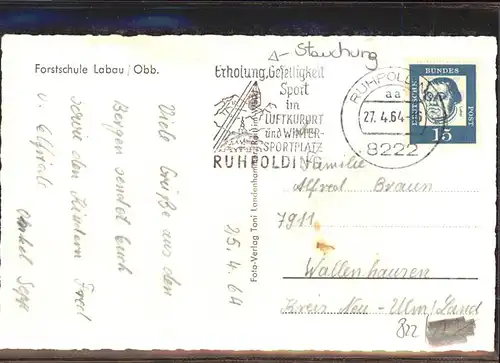 Stauchung
Forstschule Labau/Obb.
Erholung, Geselligkeit
Sport
im
LUFTKURORT
und WINTER-
SPORTPLATZ
RUHPOLDING
RUHPOLDING
aa
27.4.64-6
8222
DEUTSCHE
BUNDES
POST
15
Viele Grüße aus den
Bergen sendet Euch
sowie den Kindern Fred
u. Elfriede
Onkel Sepp
25.4.64
Foto-Verlag Toni Landenhammer, Ruhpolding
Familie
Alfred Braun
7911
Wallenhausen
Kreis Neu-Ulm/Land
822